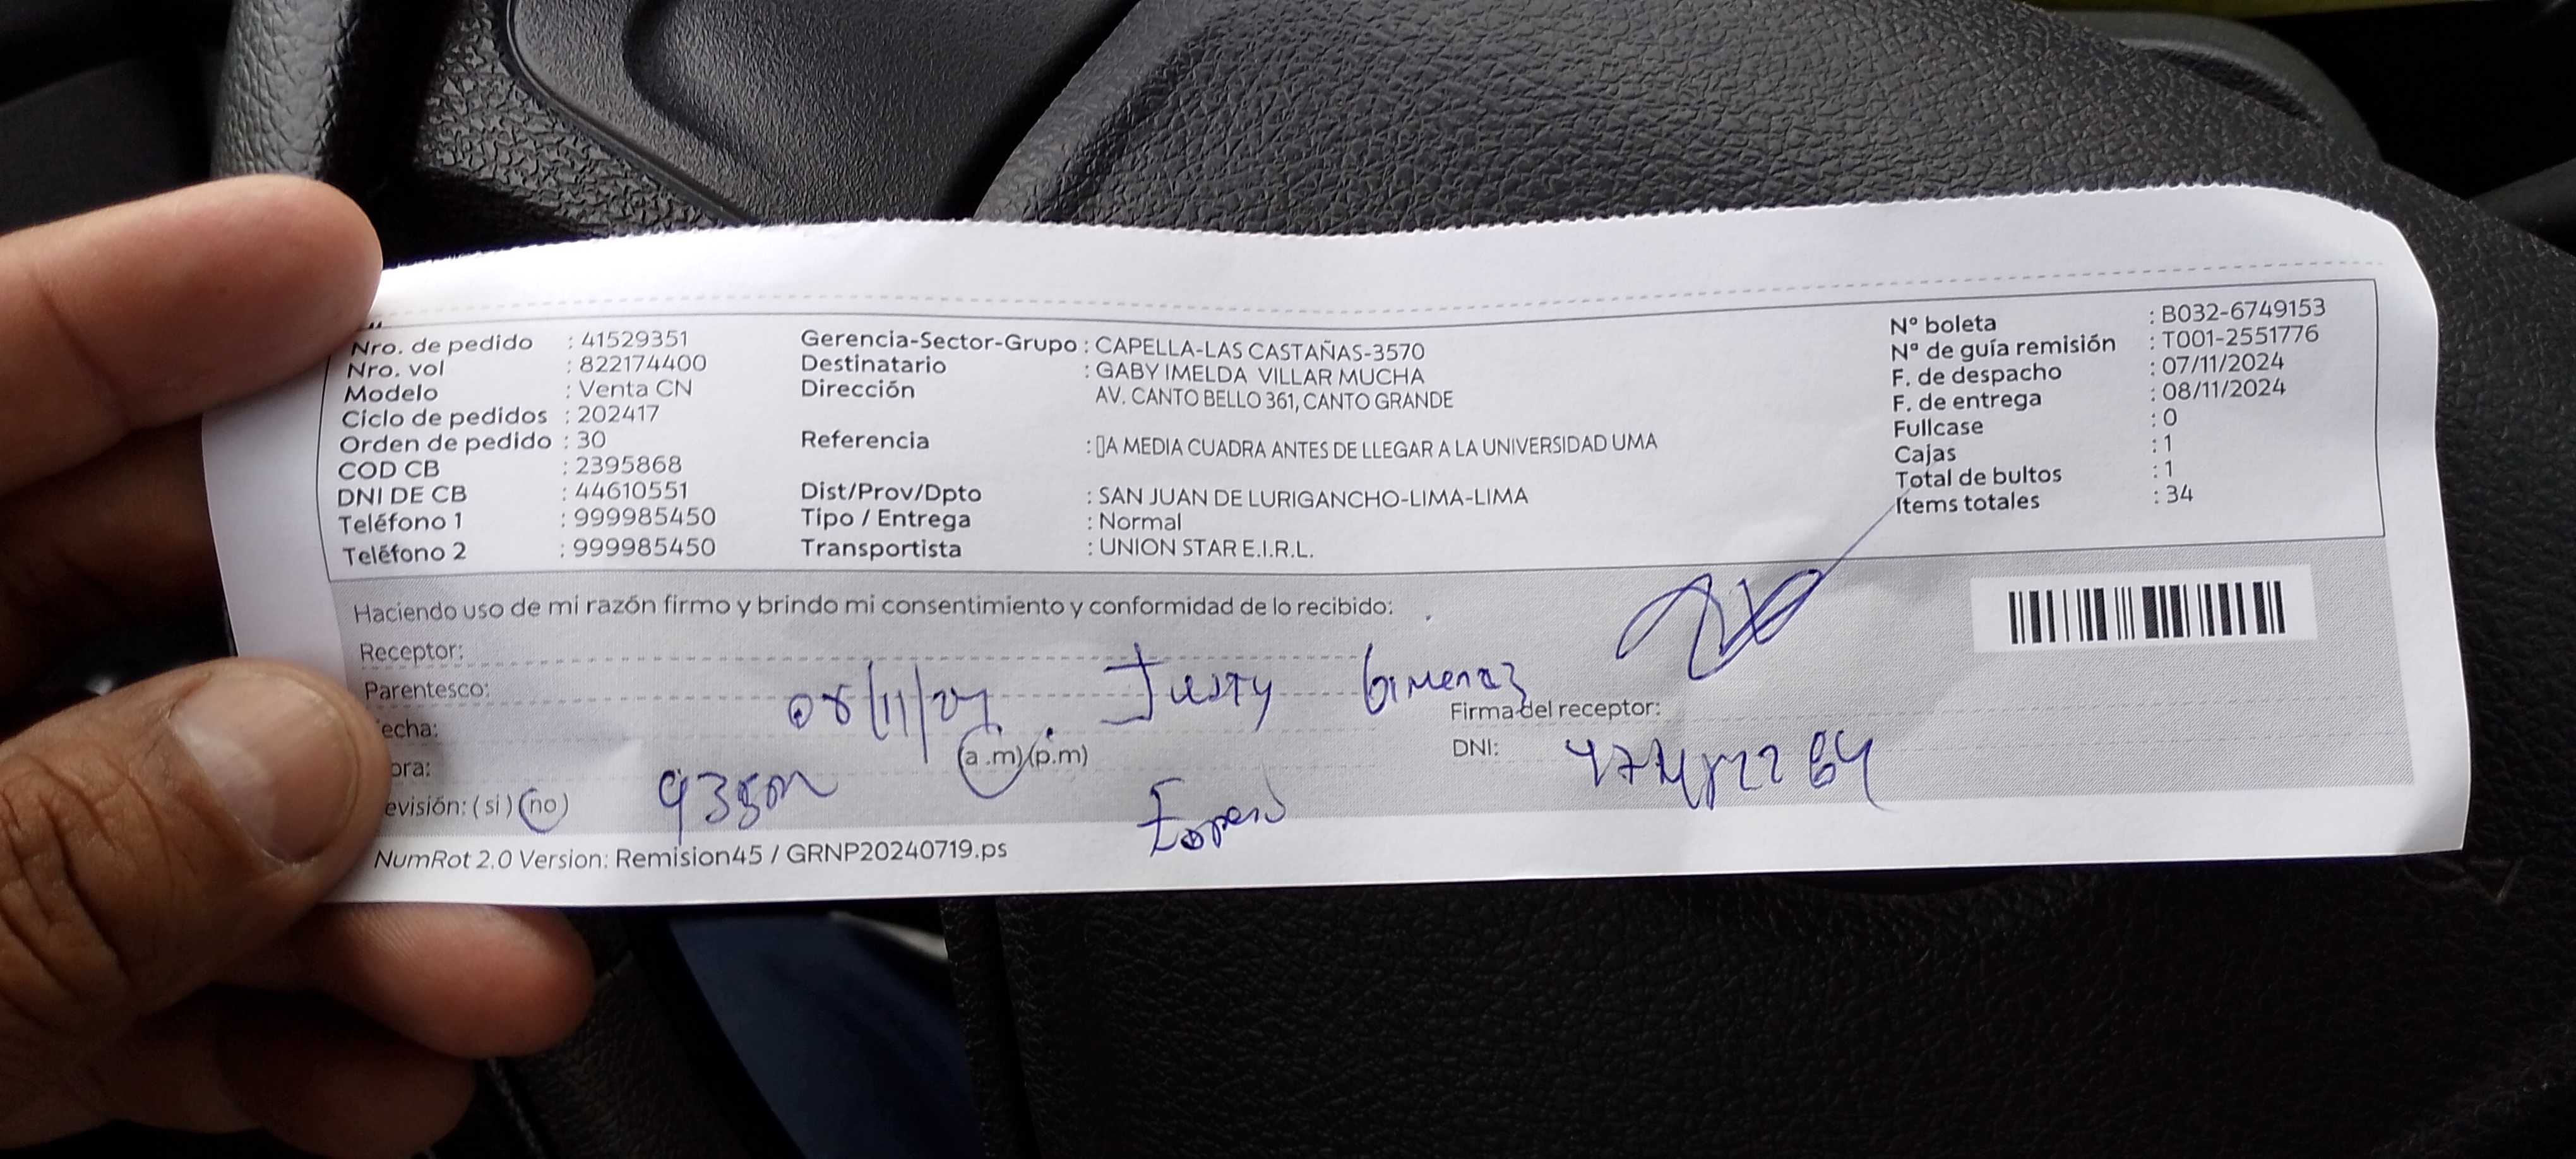 Nro. de pedido : 41529351
Nro. vol : 822174400
Modelo : Venta CN
Ciclo de pedidos : 202417
Orden de pedido : 30
COD CB : 2395868
DNI DE CB : 44610551
Teléfono 1 : 999985450
Teléfono 2 : 999985450
Gerencia-Sector-Grupo : CAPELLA-LAS CASTAÑAS-3570
Destinatario : GABY IMELDA VILLAR MUCHA
Dirección AV. CANTO BELLO 361, CANTO GRANDE
Referencia : A MEDIA CUADRA ANTES DE LLEGAR A LA UNIVERSIDAD UMA
Dist/Prov/Dpto : SAN JUAN DE LURIGANCHO-LIMA-LIMA
Tipo / Entrega : Normal
Transportista : UNION STAR E.I.R.L.
Nº boleta : B032-6749153
Nº de guía remisión : T001-2551776
F. de despacho : 07/11/2024
F. de entrega : 08/11/2024
Fullcase : 0
Cajas : 1
Total de bultos : 1
Items totales : 34
Haciendo uso de mi razón firmo y brindo mi consentimiento y conformidad de lo recibido:
Receptor:
Parentesco:
08/11/24
echa:
ora: (a.m)(p.m)
evisión: (si) (no)
Firma del receptor:
DNI:
NumRot 2.0 Version: Remision45 / GRNP20240719.ps